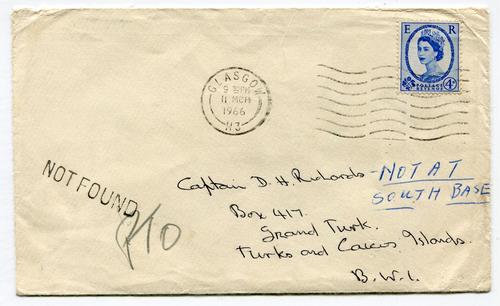 E R
POSTAGE
REVENUE
4D
GLASGOW
11 MCH
1966
NOT FOUND
Captain D. H. Richards
NOT AT
SOUTH BASE
Box 417.
Grand Turk.
Turks and Caicos Islands.
B.W.I.